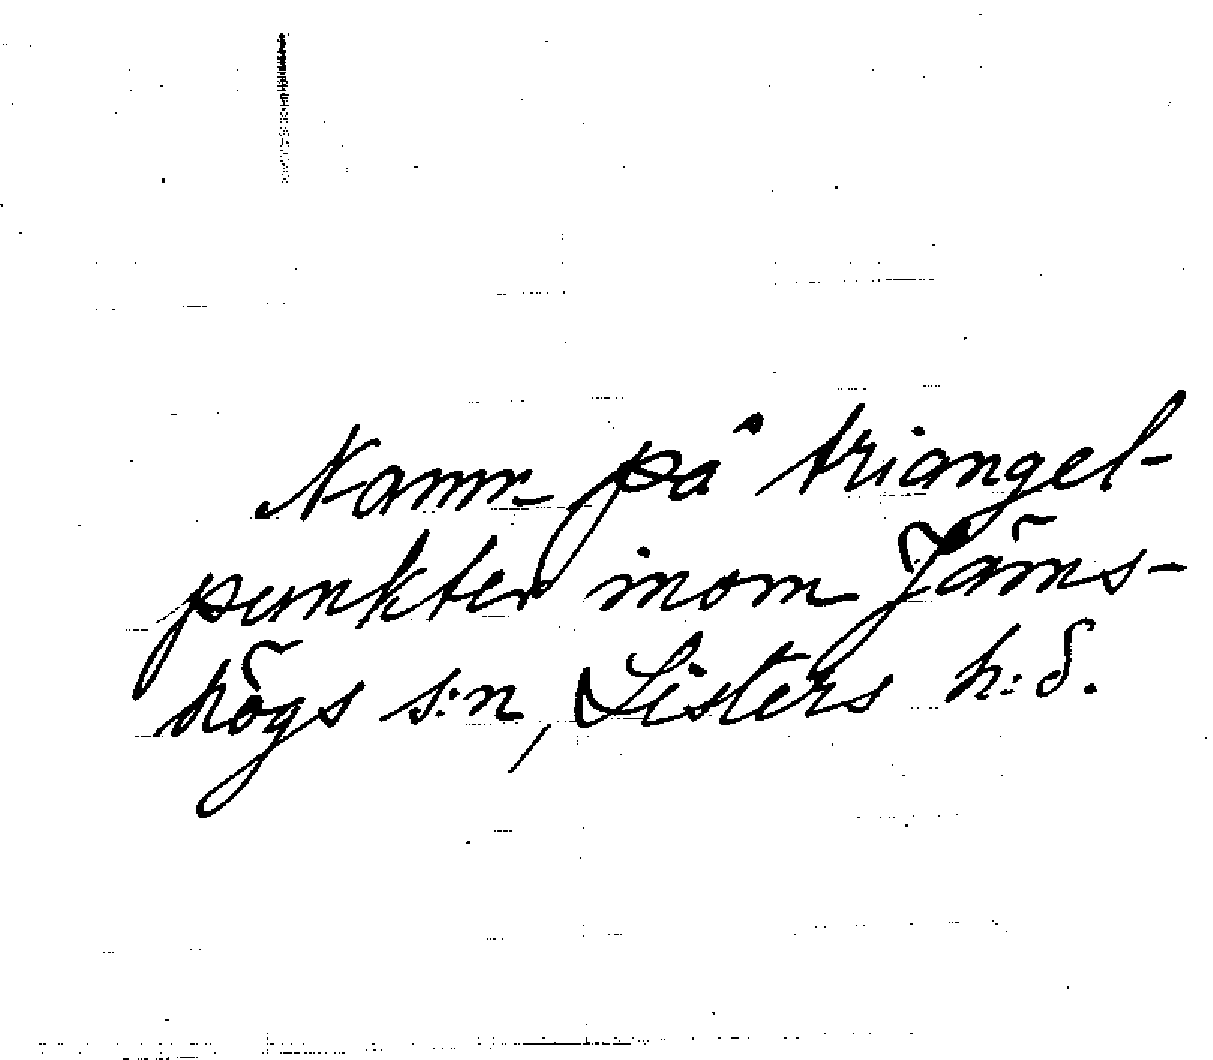 Namn på triangel-
punkter inom Jäms-
högs s:n, Listers h:d.